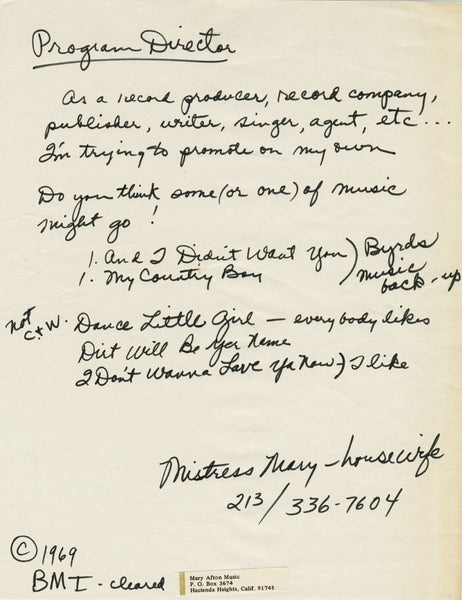 Program Director
As a record producer, record company,
publisher, writer, singer, agent, etc...
I'm trying to promote on my own
Do you think some (or one) of music
might go!
1. And I Didn't Want You ) Byrds
1. My Country Boy ) music
back-up
not
C+W. Dance Little Girl – everybody likes
Dirt Will Be Yer Name
I Don't Wanna Love Ya Now } I like
Mistress Mary – housewife
213/336-7604
© 1969
BMI - cleared
Mary Afton Music
P. O. Box 3674
Hacienda Heights, Calif. 91745